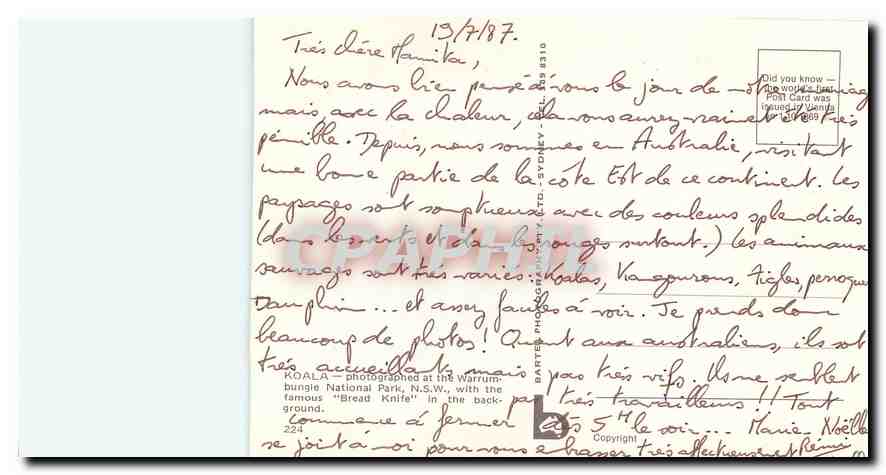 19/7/87.
Très chère Mamita,
Nous avons bien pensé à vous le jour de notre mariage
mais, avec la chaleur, cela vous aurez vraiment été très
pénible. Depuis, nous sommes en Australie, visitant
une bonne partie de la côte Est de ce continent. Les
paysages sont somptueux avec des couleurs splendides
(dans les verts et dans les rouges surtout.) Les animaux
sauvages sont très variés : Koalas, Kangourous, Aigles, perroquet
Dauphin... et assez faciles à voir. Je prends donc
beaucoup de photos! Quant aux australiens, ils sont
très accueillants mais pas très vifs. Ils ne semblent
pas très travailleurs!! Tout
commence à fermer dès 5H le soir... Marie-Noëlle
se joint à moi pour vous embrasser très affectueusement Rémi
Did you know —
the world's first
Post Card was
issued in Vienna
on 1.10.1869
KOALA — photographed at the Warrum-
bungle National Park, N.S.W., with the
famous "Bread Knife" in the back-
ground.
224
BARTEL PHOTOGRAPHY PTY. LTD. - SYDNEY - TEL. 8310
Copyright
CPAPHIL